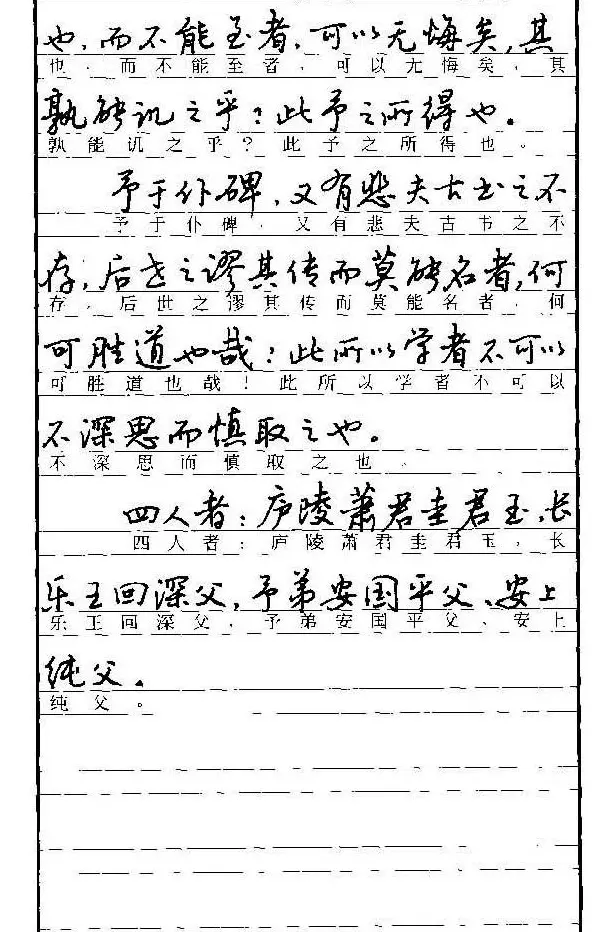 也，而不能至者，可以无悔矣，其
也，而不能至者，可以无悔矣，其
孰能讥之乎？此予之所得也。
孰能讥之乎？此予之所得也。
予于仆碑，又有悲夫古书之不
予于仆碑，又有悲夫古书之不
存，后世之谬其传而莫能名者，何
存，后世之谬其传而莫能名者，何
可胜道也哉！此所以学者不可以
可胜道也哉！此所以学者不可以
不深思而慎取之也。
不深思而慎取之也。
四人者：庐陵萧君圭君玉，长
四人者：庐陵萧君圭君玉，长
乐王回深父，予弟安国平父、安上
乐王回深父，予弟安国平父、安上
纯父。
纯父。